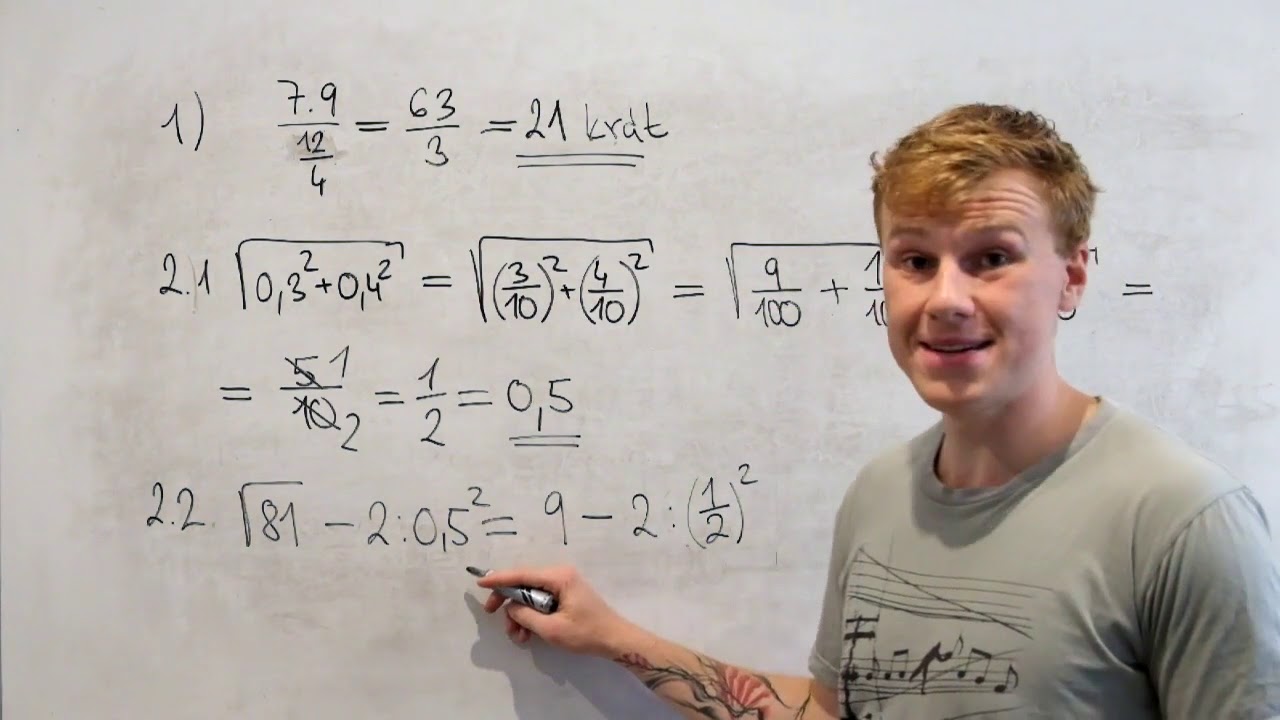 1) 7.9/(12/4) = 63/3 = 21 krát
2.1 √(0,3²+0,4²) = √((3/10)²+(4/10)²) = √(9/100 + 1 =
= 51/102 = 1/2 = 0,5
2.2. √81 – 2:0,5² = 9 – 2:(1/2)²